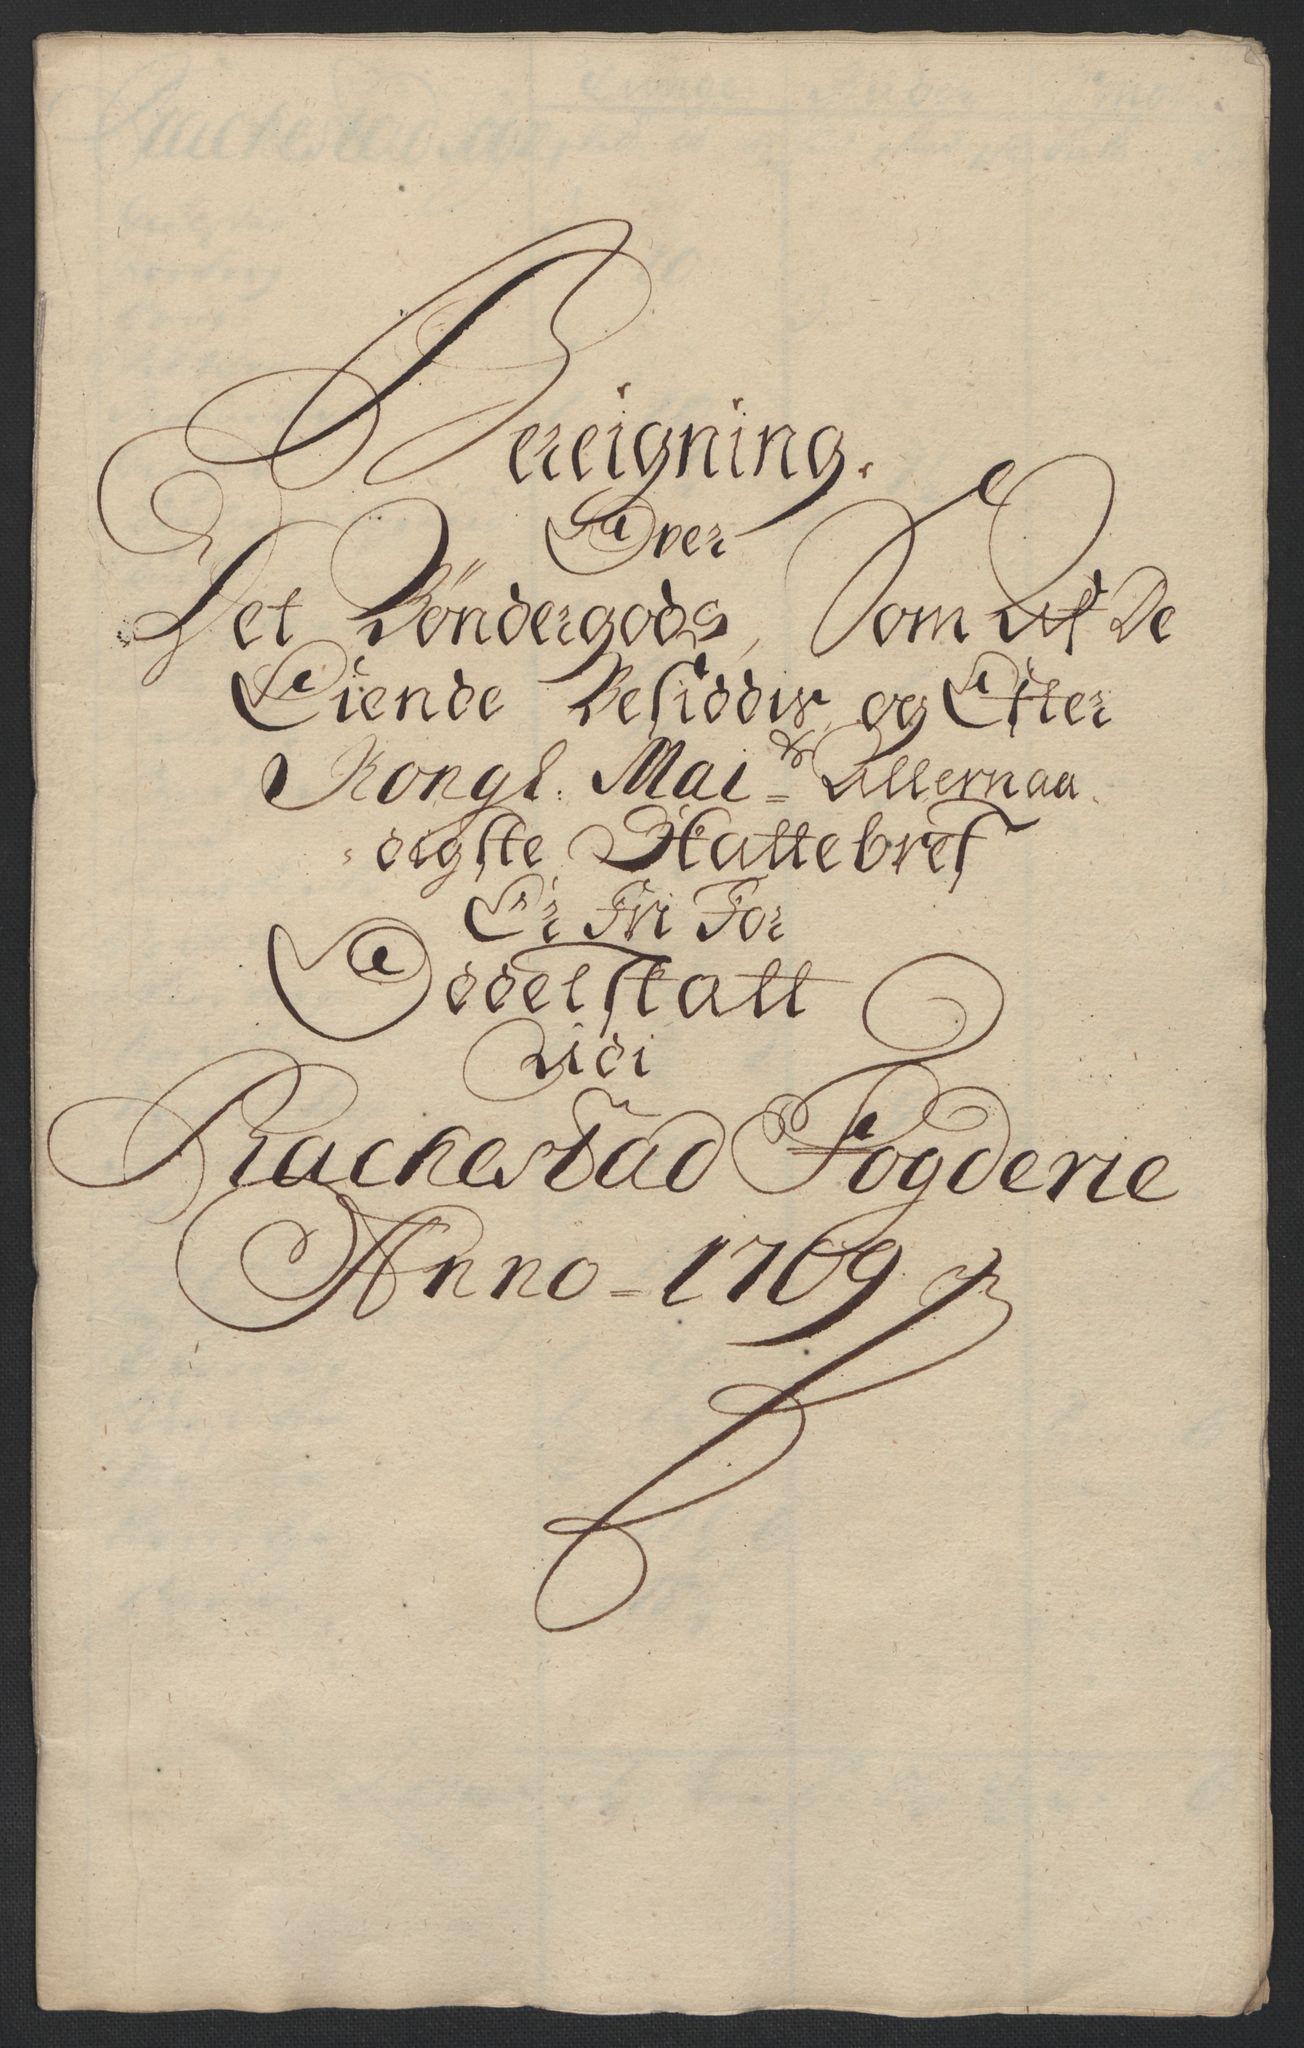 Bereigning.
Over
Det Bøndergods, Som af De
Eiende Besiddis, og Efter
Kongl. Mai_ts Allernaa
digste Skattebref
Er Fri For
Odelskatt
Udi
Rackestad Fogderie
Anno = 1709